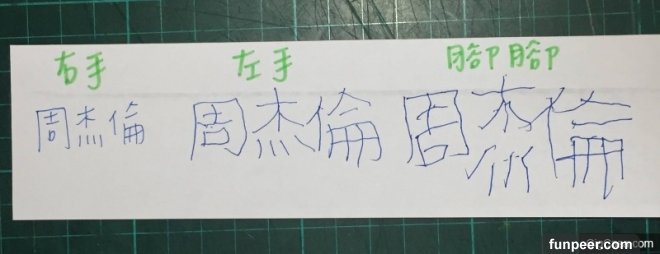 右手 左手 腳腳
周杰倫 周杰倫 周杰倫
funpeer.com